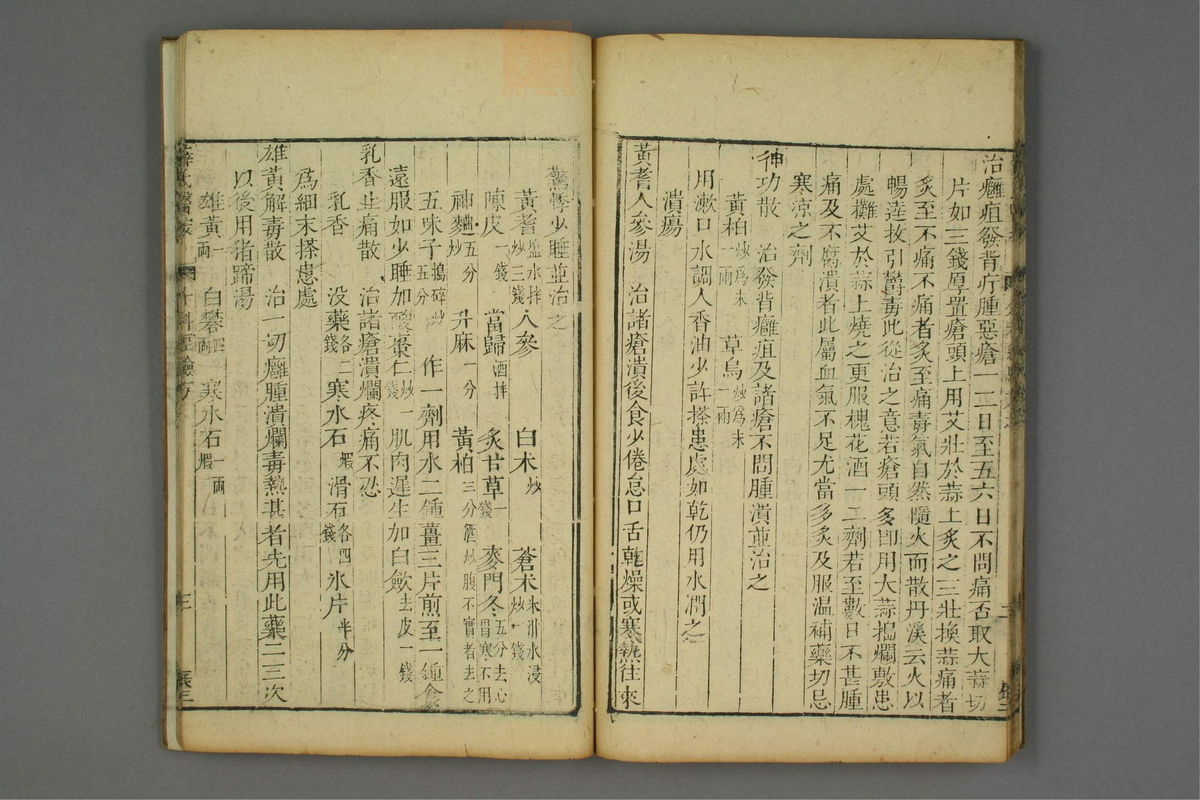 治癰疽發背疔腫惡瘡一二日至五六日不問痛否取大蒜切
片如三錢厚置瘡頭上用艾壯於蒜上炙之三壯換蒜痛者
炙至不痛不痛者炙至痛毒氣自然隨火而散丹溪云火以
暢達拔引鬱毒此從治之意若瘡頭多即用大蒜搗爛敷患
處攤艾於蒜上燒之更服槐花酒一二劑若至數日不甚腫
痛及不腐潰者此屬血氣不足尤當多炙及服温補藥切忌
寒凉之劑
神功散 治發背癰疽及諸瘡不問腫潰並治之
黃柏炒爲末一兩 草烏炒爲末一兩
用漱口水調入香油少許搽患處如乾仍用水潤之
潰瘍
黃耆人參湯 治諸瘡潰後食少倦怠口舌乾燥或寒熱往來
驚悸少睡並治之
黃耆鹽水拌炒三錢 人參 白术炒 蒼术米泔水浸炒一錢
陳皮一錢 當歸酒拌 炙甘草一錢 麥門冬五分去心胃寒不用
神麯五分炒 升麻一分 黃柏三分酒炒腹不實者去之
五味子搗碎炒五分 作一劑用水二鍾薑三片煎至一鍾食
遠服如少睡加酸棗仁炒一錢 肌肉遲生加白歛去皮一錢
乳香止痛散 治諸瘡潰爛疼痛不忍
乳香 没藥各二錢 寒水石煆 滑石各四錢 氷片半分
爲細末搽患處
雄黃解毒散 治一切癰腫潰爛毒熱甚者先用此藥二三次
以後用猪蹄湯
雄黃一兩 白礬四兩 寒水石煆一兩